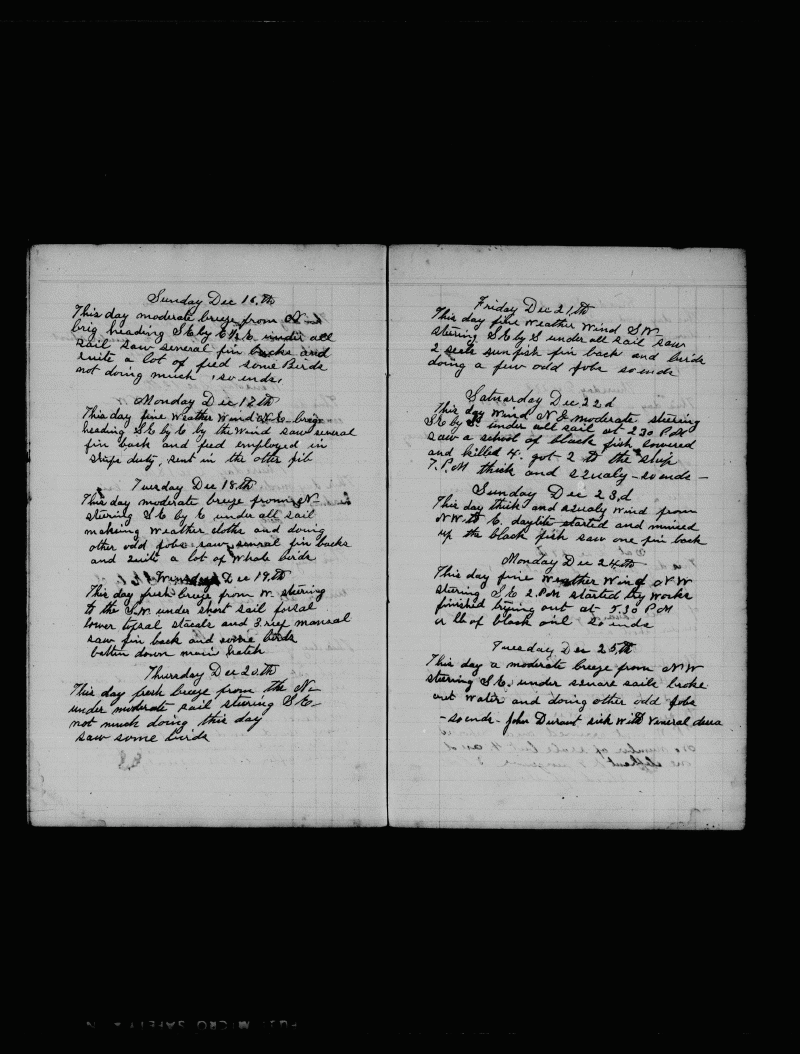 Sunday Dec 16.th
This day moderate breeze from N—
brig heading S.E by E ½ E. under all
sail saw several fin backs and
quite a lot of feed some Birds
not doing much, so ends,
Monday Dec 17.th
This day fine weather Wind N.E— breeze
heading S.E by E by the Wind saw several
fin back and feed employed in
ships duty, sent in the otter jib
Tuesday Dec 18.th
This day moderate breeze from N—
steering S.E by E under all sail
making Weather cloths and doing
other odd jobs saw several fin backs
and quite a lot of Whale birds
Dec 19.th
This day fresh breeze from W. steering
to the S.W. under short sail forsal
lower topsal stasels and 3.reef mansal
saw fin back and some birds
batten down main hatch
Thursday Dec 20.th
This day fresh breeze from the N—
under moderate sail steering S.E—
not much doing this day
saw some birds
Friday Dec 21,th
This day fine Weather Wind S.W.
steering S.E by S under all sail saw
2 seals sunfish fin back and birds
doing a few odd jobs so ends
Saturday Dec 22d
This day Wind N & moderate steering
S.E by S. under all sail at 2.30 P.M
saw a school of black fish, lowered
and killed 4. got 2 to the ship
7. P.M thick and squaly – so ends –
Sunday Dec 23,d
This day thick and squaly Wind from
N.W. to E. daylite started and minsed
up the black fish saw one fin back
Monday Dec 24th
This day fine Weather Wind N.W
steering S.E 2.P.M started try works
finished trying out at 5.30 P.M
of black oil So ends
Tuesday Dec 25,th
This day a moderate breeze from N.W
steering S.E. under square sails broke
out Water and doing other odd jobs
– so ends – John Durant sick with Veneral